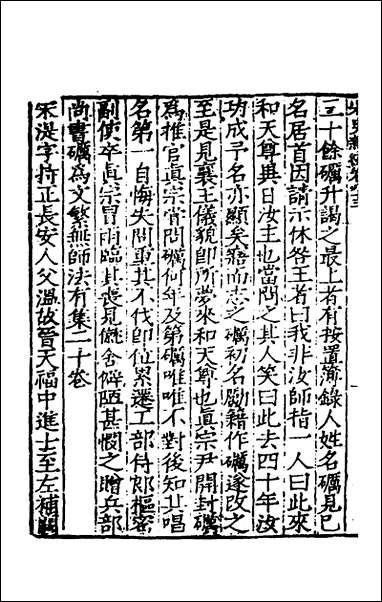 三十餘礪升謁之最上者有按置簿錄人姓名礪見已
名居首因請示休咎王者曰我非汝師指一人曰此來
和天尊異日汝主也當問之其人笑曰此去四十年汝
功成予名亦顯矣寤而志之礪初名勵籍作礪遂改之
至是見襄王儀貌即所夢來和天尊也眞宗尹開封礪
為推官眞宗嘗問礪何年及第礪唯唯不對後知其唱
名第一自悔失問重其不伐即位累遷工部侍郎樞密
副使卒眞宗冒雨臨其喪見僦舍僻陋甚憫之贈兵部
尚書礪為文繁無師法有集二十卷
宋湜字持正長安人父溫故晉天福中進士至左補闕